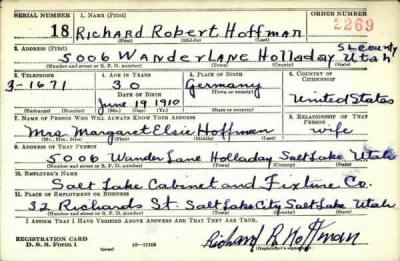 SERIAL NUMBER 1. NAME (Print) ORDER NUMBER
18 Richard Robert Hoffman 2269
(First) (Middle) (Last)
2. ADDRESS (Print) SL County
5006 Wander Lane Holladay Utah
(Number and street or R. F. D. number) (Town) (County) (State)
3. TELEPHONE 4. AGE IN YEARS 5. PLACE OF BIRTH 6. COUNTRY OF CITIZENSHIP
3-1671 30 Germany
DATE OF BIRTH (Town or county)
June 19 1910 United States
(Exchange) (Number) (Mo.) (Day) (Yr.) (State or country)
7. NAME OF PERSON WHO WILL ALWAYS KNOW YOUR ADDRESS 8. RELATIONSHIP OF THAT PERSON
Mrs. Margaret Elsie Hoffman wife
(Mr., Mrs., Miss) (First) (Middle) (Last)
9. ADDRESS OF THAT PERSON
5006 Wander Lane Holladay Salt Lake Utah
(Number and street or R. F. D. number) (Town) (County) (State)
10. EMPLOYER'S NAME
Salt Lake Cabinet and Fixture Co.
11. PLACE OF EMPLOYMENT OR BUSINESS
32 Richards St. Salt Lake City Salt Lake Utah
(Number and street or R. F. D. number) (Town) (County) (State)
I AFFIRM THAT I HAVE VERIFIED ABOVE ANSWERS AND THAT THEY ARE TRUE.
REGISTRATION CARD
D. S. S. Form 1 16-17105 Richard R. Hoffman
(Registrant's signature)